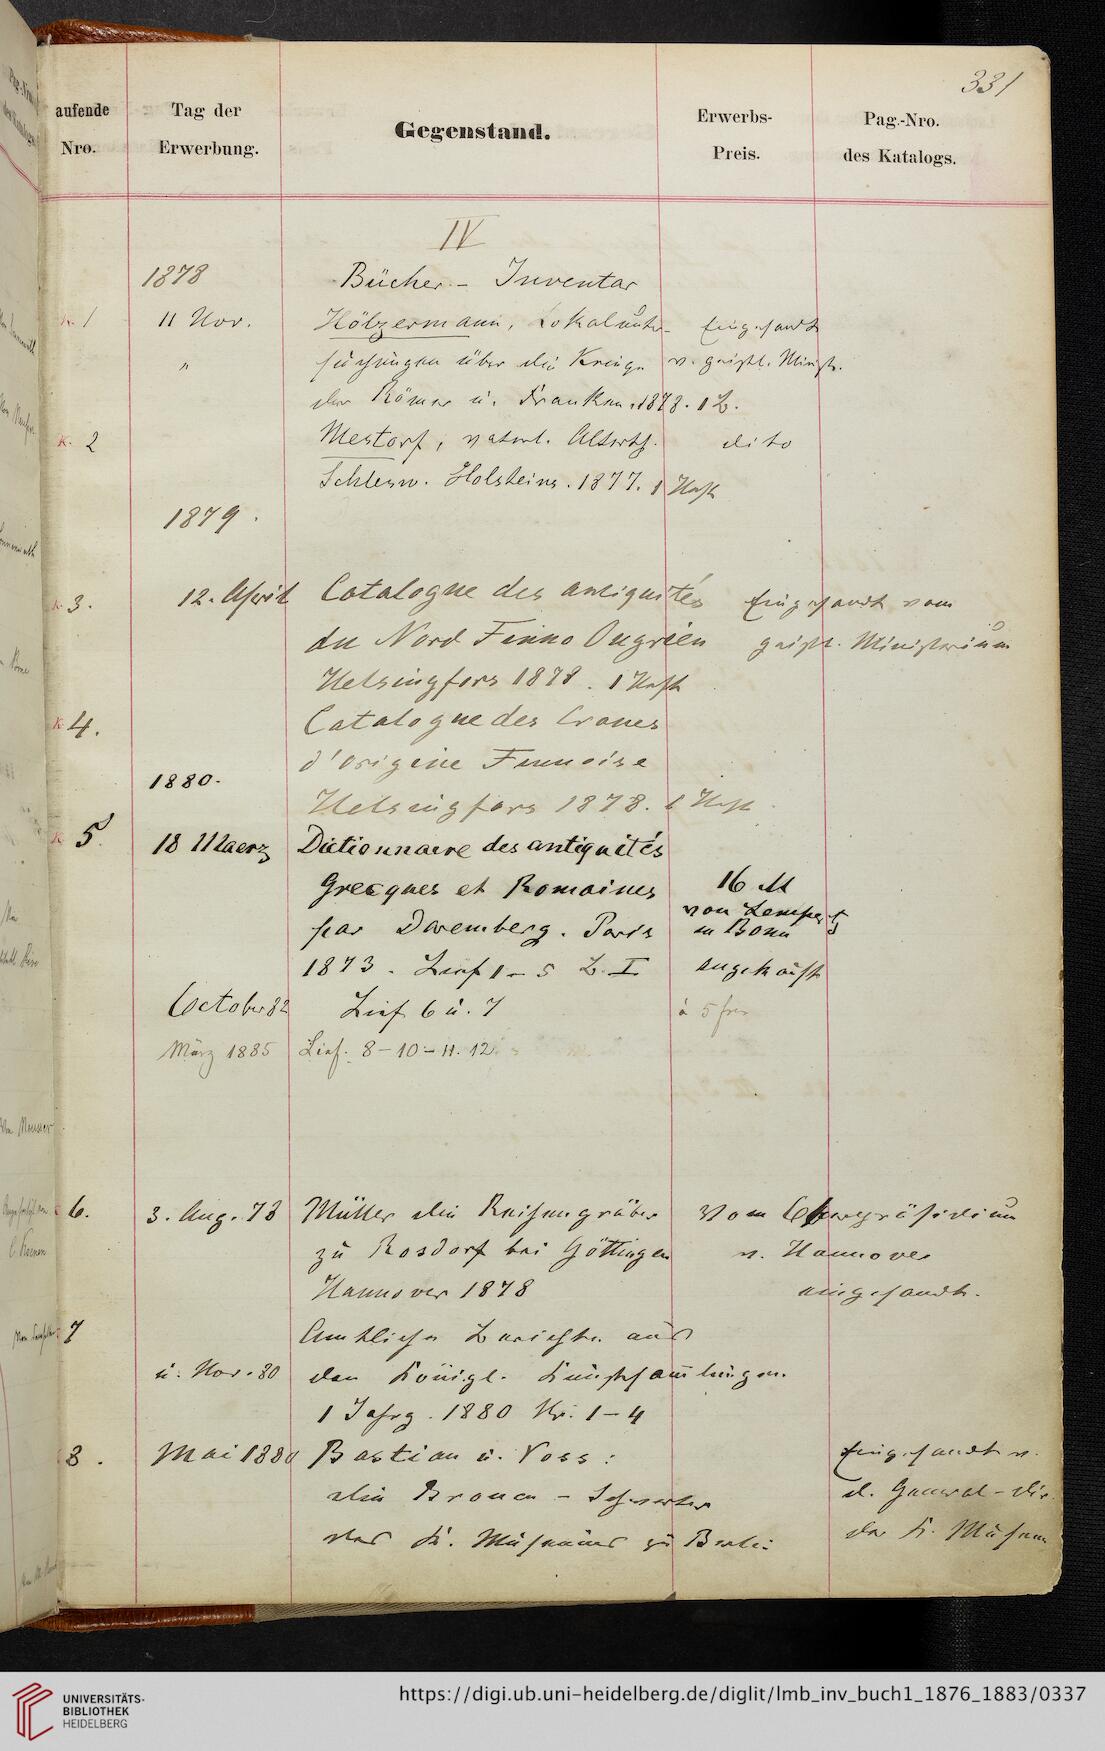 331
aufende
Nro.
Tag der
Erwerbung.
Gegenstand.
Erwerbs-
Preis.
Pag.-Nro.
des Katalogs.
IV
1878
Bücher - Inventar
K. 1
11 Nov.
Hölzermann, Lokalunter-
Eingesandt
"
suchungen über die Kriege
v. geistl. Minist.
der Römer u. Franken. 1878. 1 B.
K. 2
Mestorf, vaterl. Alterth.
dito
Schlesw. Holsteins. 1877. 1 Heft
1879.
K. 3.
12. April
Catalogue des antiquités
Eingesandt vom
du Nord Finno Ougrien
geistl. Ministerium
Helsingfors 1878. 1 Heft
K. 4.
Catalogue des Cranes
d'origine Finnoise
1880.
Helsingfors 1878. 1 Heft
K. 5.
18 Maerz
Dictionnaire des antiquités
Grecques et Romaines
16 M
par Daremberg. Paris
von Lempertz
in Bonn
1873. Lief 1-5 B. I
angekauft
October 82
Lief. 6 u. 7
à 5 frs
März 1885
Lief. 8-10-11. 12.
6.
3. Aug. 78
Müller die Reihengräber
Vom Oberpräsidium
zu Rosdorf bei Göttingen
v. Hannover
Hannover 1878
eingesandt.
7
Amtliche Berichte aus
u. Nov. 80
den Königl. Kunstsammlungen.
1 Jahrg. 1880 Nr. 1-4
8.
Mai 1880
Bastian u. Voss:
Eingesandt v.
die Bronce-Schwerter
d. General-Dir.
des K. Museums zu Berlin
der K. Museen
UNIVERSITÄTS-
BIBLIOTHEK
HEIDELBERG
https://digi.ub.uni-heidelberg.de/diglit/lmb_inv_buch1_1876_1883/0337